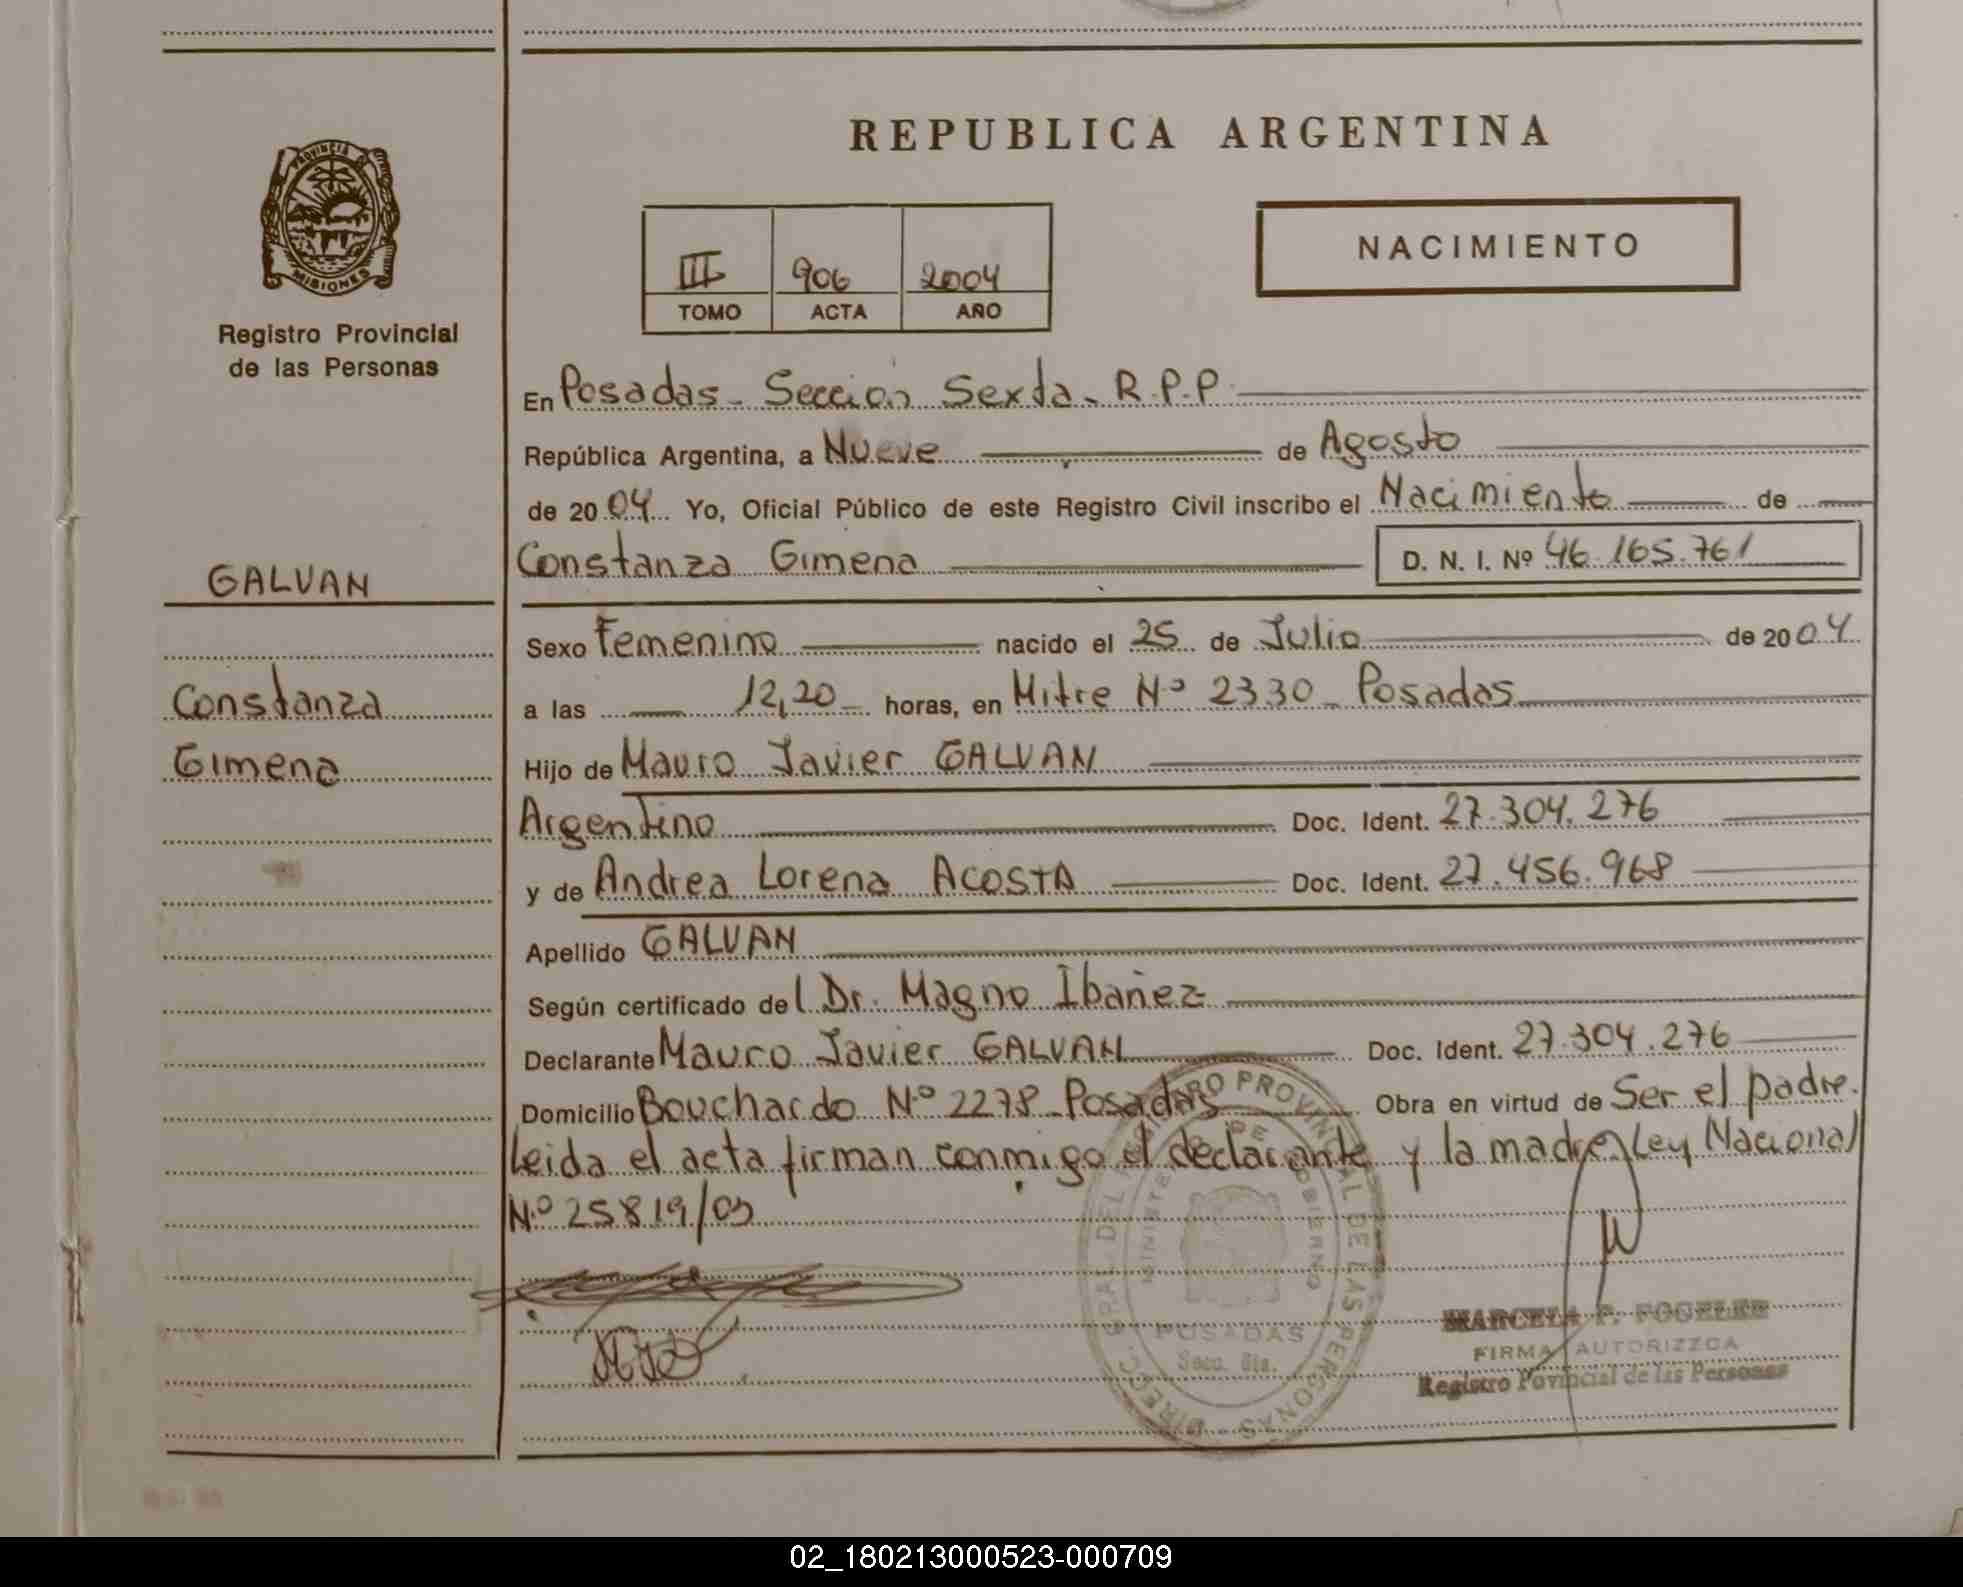 REPUBLICA ARGENTINA
PROVINCIA DE
MISIONES
Registro Provincial
de las Personas
III 906 2004
TOMO ACTA AÑO
NACIMIENTO
En Posadas - Sección Sexta - R.P.P.
República Argentina, a Nueve de Agosto
de 2004 Yo, Oficial Público de este Registro Civil inscribo el Nacimiento de
Constanza Gimena D. N. I. Nº 46.165.761
GALVAN
Constanza
Gimena
Sexo Femenino nacido el 25 de Julio de 2004
a las 12,20 horas, en Mitre Nº 2330 - Posadas
Hijo de Mauro Javier GALVAN
Argentino Doc. Ident. 27.304.276
y de Andrea Lorena ACOSTA Doc. Ident. 27.456.968
Apellido GALVAN
Según certificado del Dr. Magno Ibañez
Declarante Mauro Javier GALVAN Doc. Ident. 27.304.276
Domicilio Bouchardo Nº 2278 - Posadas Obra en virtud de Ser el padre.
Leida el acta firman conmigo el declarante y la madre, Ley Nacional
Nº 25819/03
DIREC. GRAL. DEL REGISTRO PROVINCIAL DE LAS PERSONAS
MINISTERIO DE GOBIERNO
POSADAS
Secc. 6ta.
MARCELA P. FOGELER
FIRMA AUTORIZZDA
Registro Povincial de las Personas
02_180213000523-000709